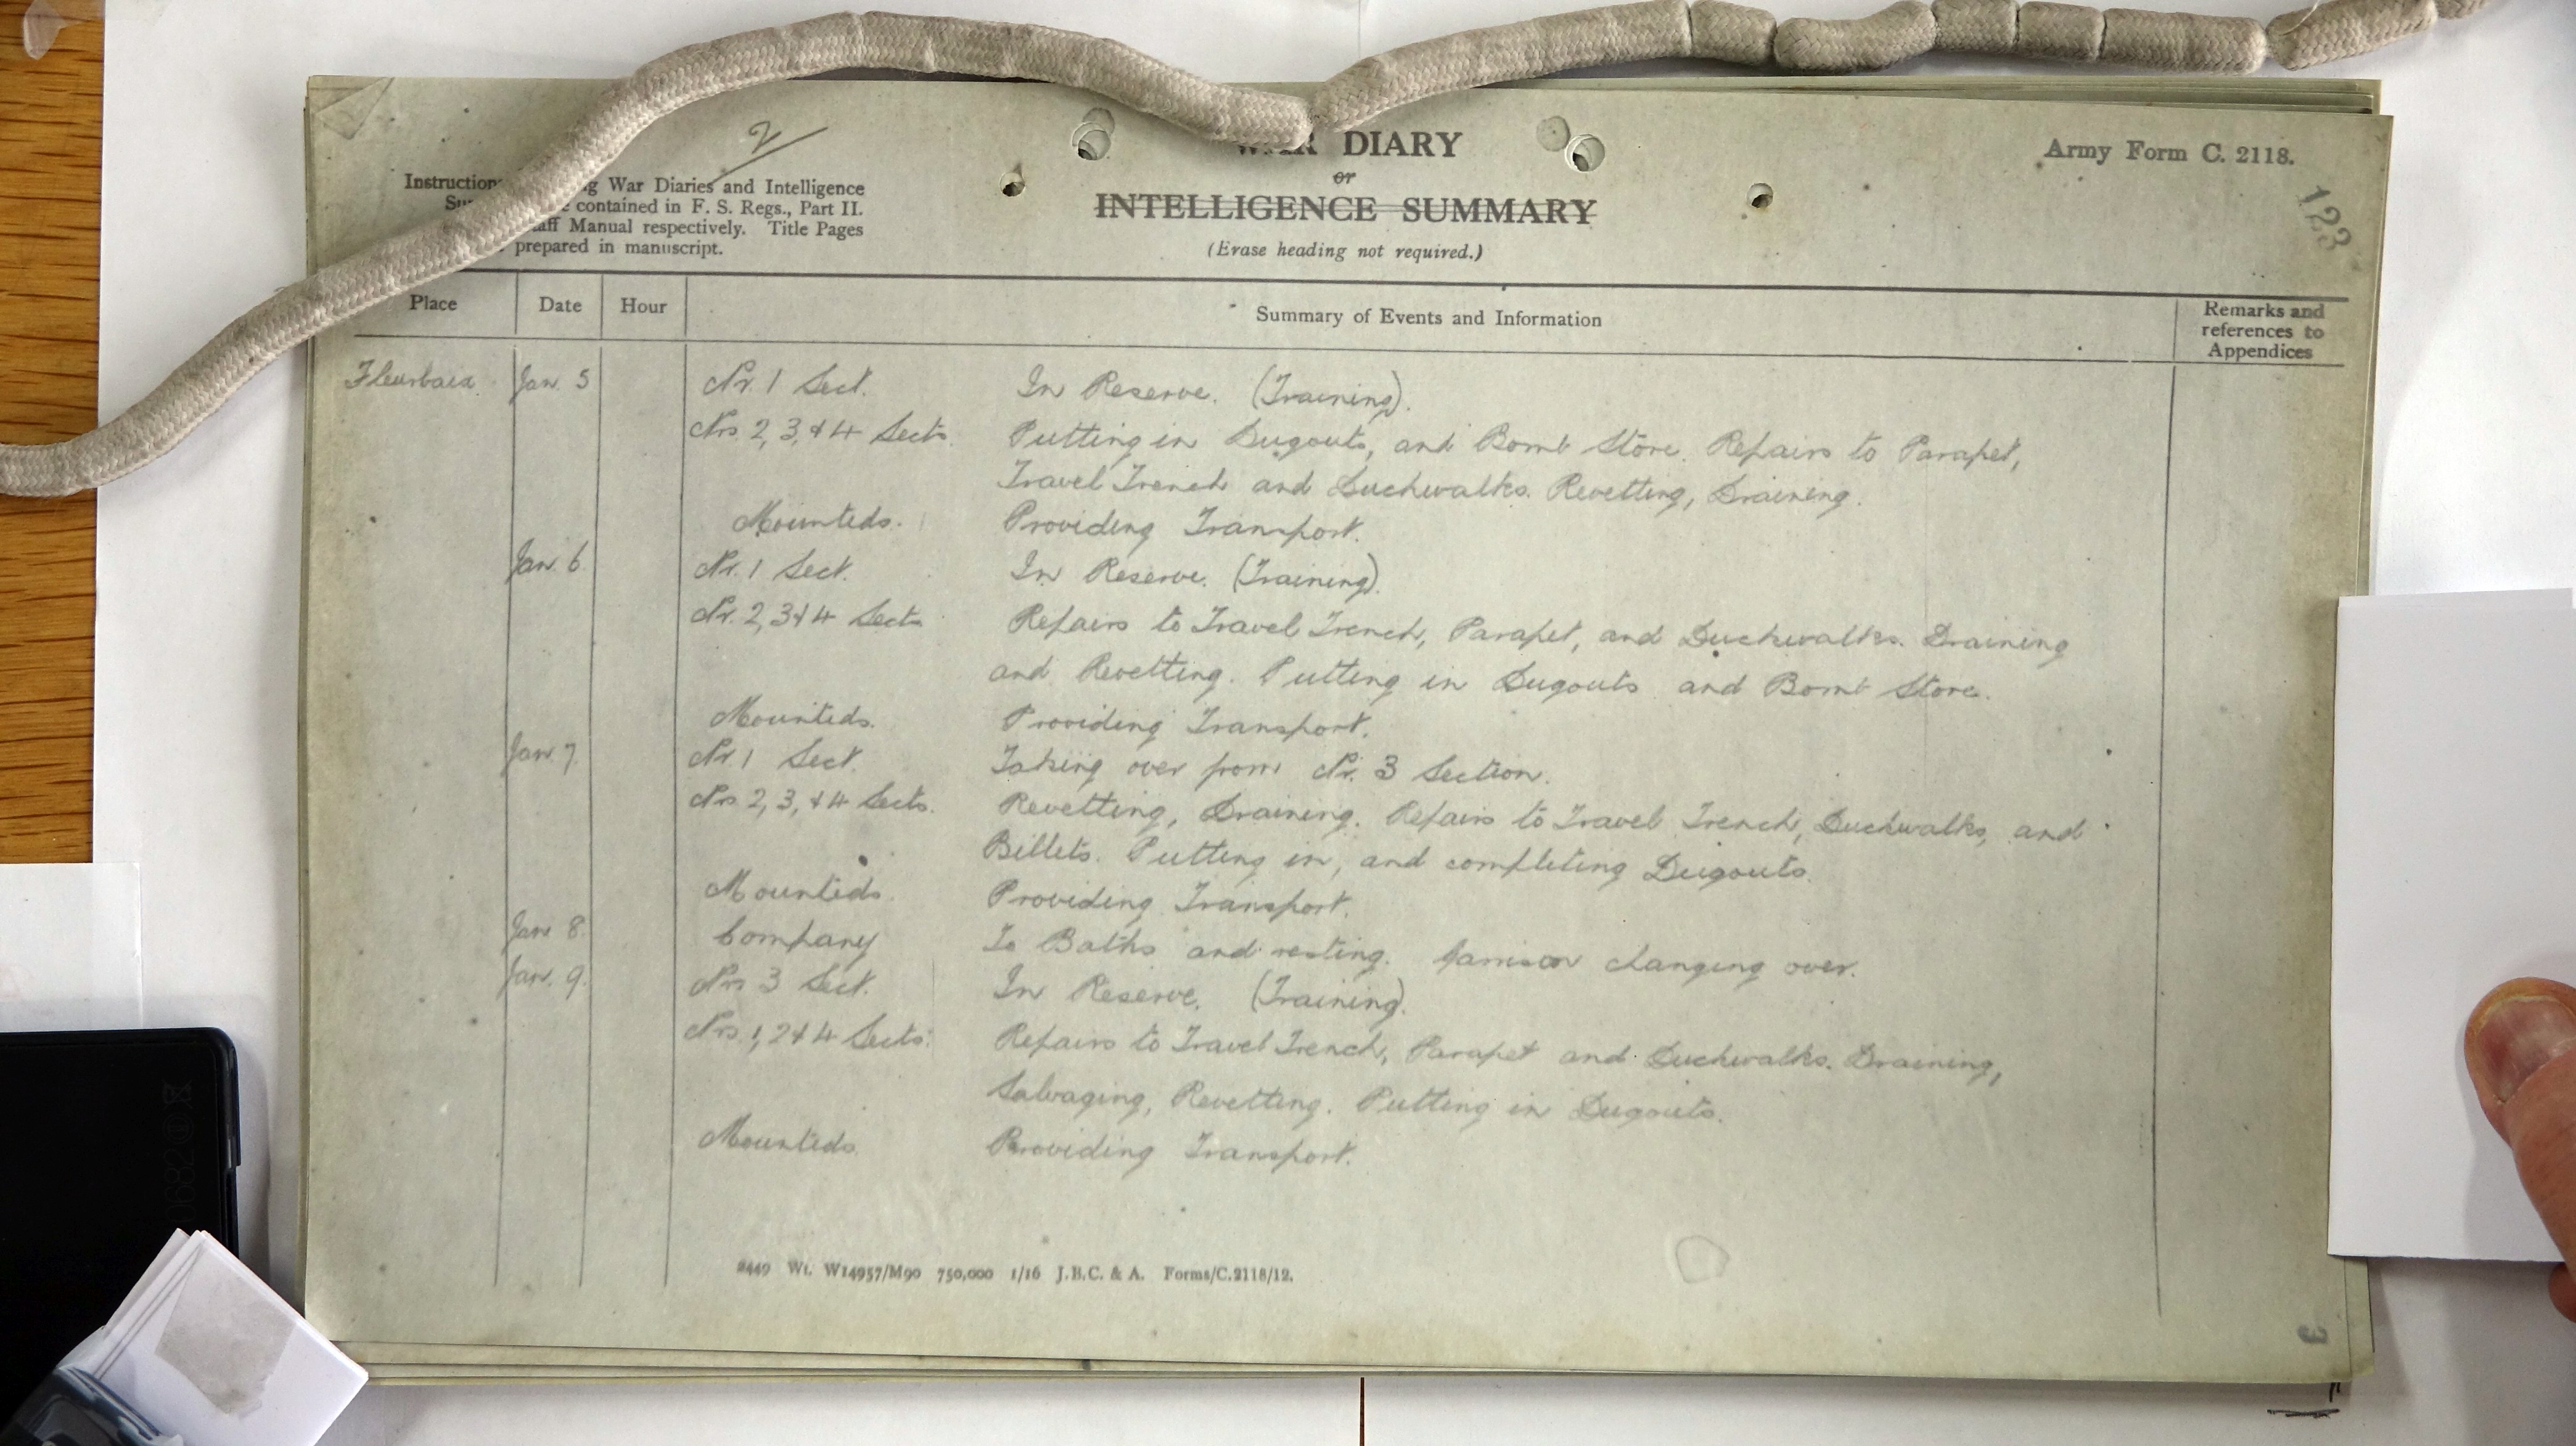 2
WAR DIARY
or
INTELLIGENCE SUMMARY
(Erase heading not required.)
Army Form C. 2118.
123
Instructions g War Diaries and Intelligence
Su e contained in F. S. Regs., Part II.
aff Manual respectively. Title Pages
prepared in manuscript.
Place Date Hour Summary of Events and Information Remarks and references to Appendices
Fleurbaix Jan. 5 Nr. 1 Sect. In Reserve. (Training).
Nrs. 2, 3, & 4 Sects. Putting in Dugouts, and Bomb Store. Repairs to Parapet,
Travel Trench and Duckwalks. Revetting, Draining.
Mounteds. Providing Transport.
Jan. 6 Nr. 1 Sect. In Reserve. (Training).
Nr. 2, 3 & 4 Sects Repairs to Travel Trench, Parapet, and Duckwalks. Draining
and Revetting. Putting in Dugouts and Bomb Store.
Mounteds. Providing Transport.
Jan. 7. Nr. 1 Sect. Taking over from Nr. 3 Section.
Nrs 2, 3, & 4 Sects. Revetting, Draining. Repairs to Travel Trench, Duckwalks, and
Billets. Putting in, and completing Dugouts.
Mounteds. Providing Transport.
Jan 8. Company To Baths and resting. Garrison changing over.
Jan. 9. Nrs 3 Sect. In Reserve. (Training).
Nrs. 1, 2 & 4 Sects. Repairs to Travel Trench, Parapet and Duckwalks. Draining,
Salvaging, Revetting. Putting in Dugouts.
Mounteds. Providing Transport.
2449 Wt. W14957/M90 750,000 1/16 J.B.C. & A. Forms/C.2118/12.
3